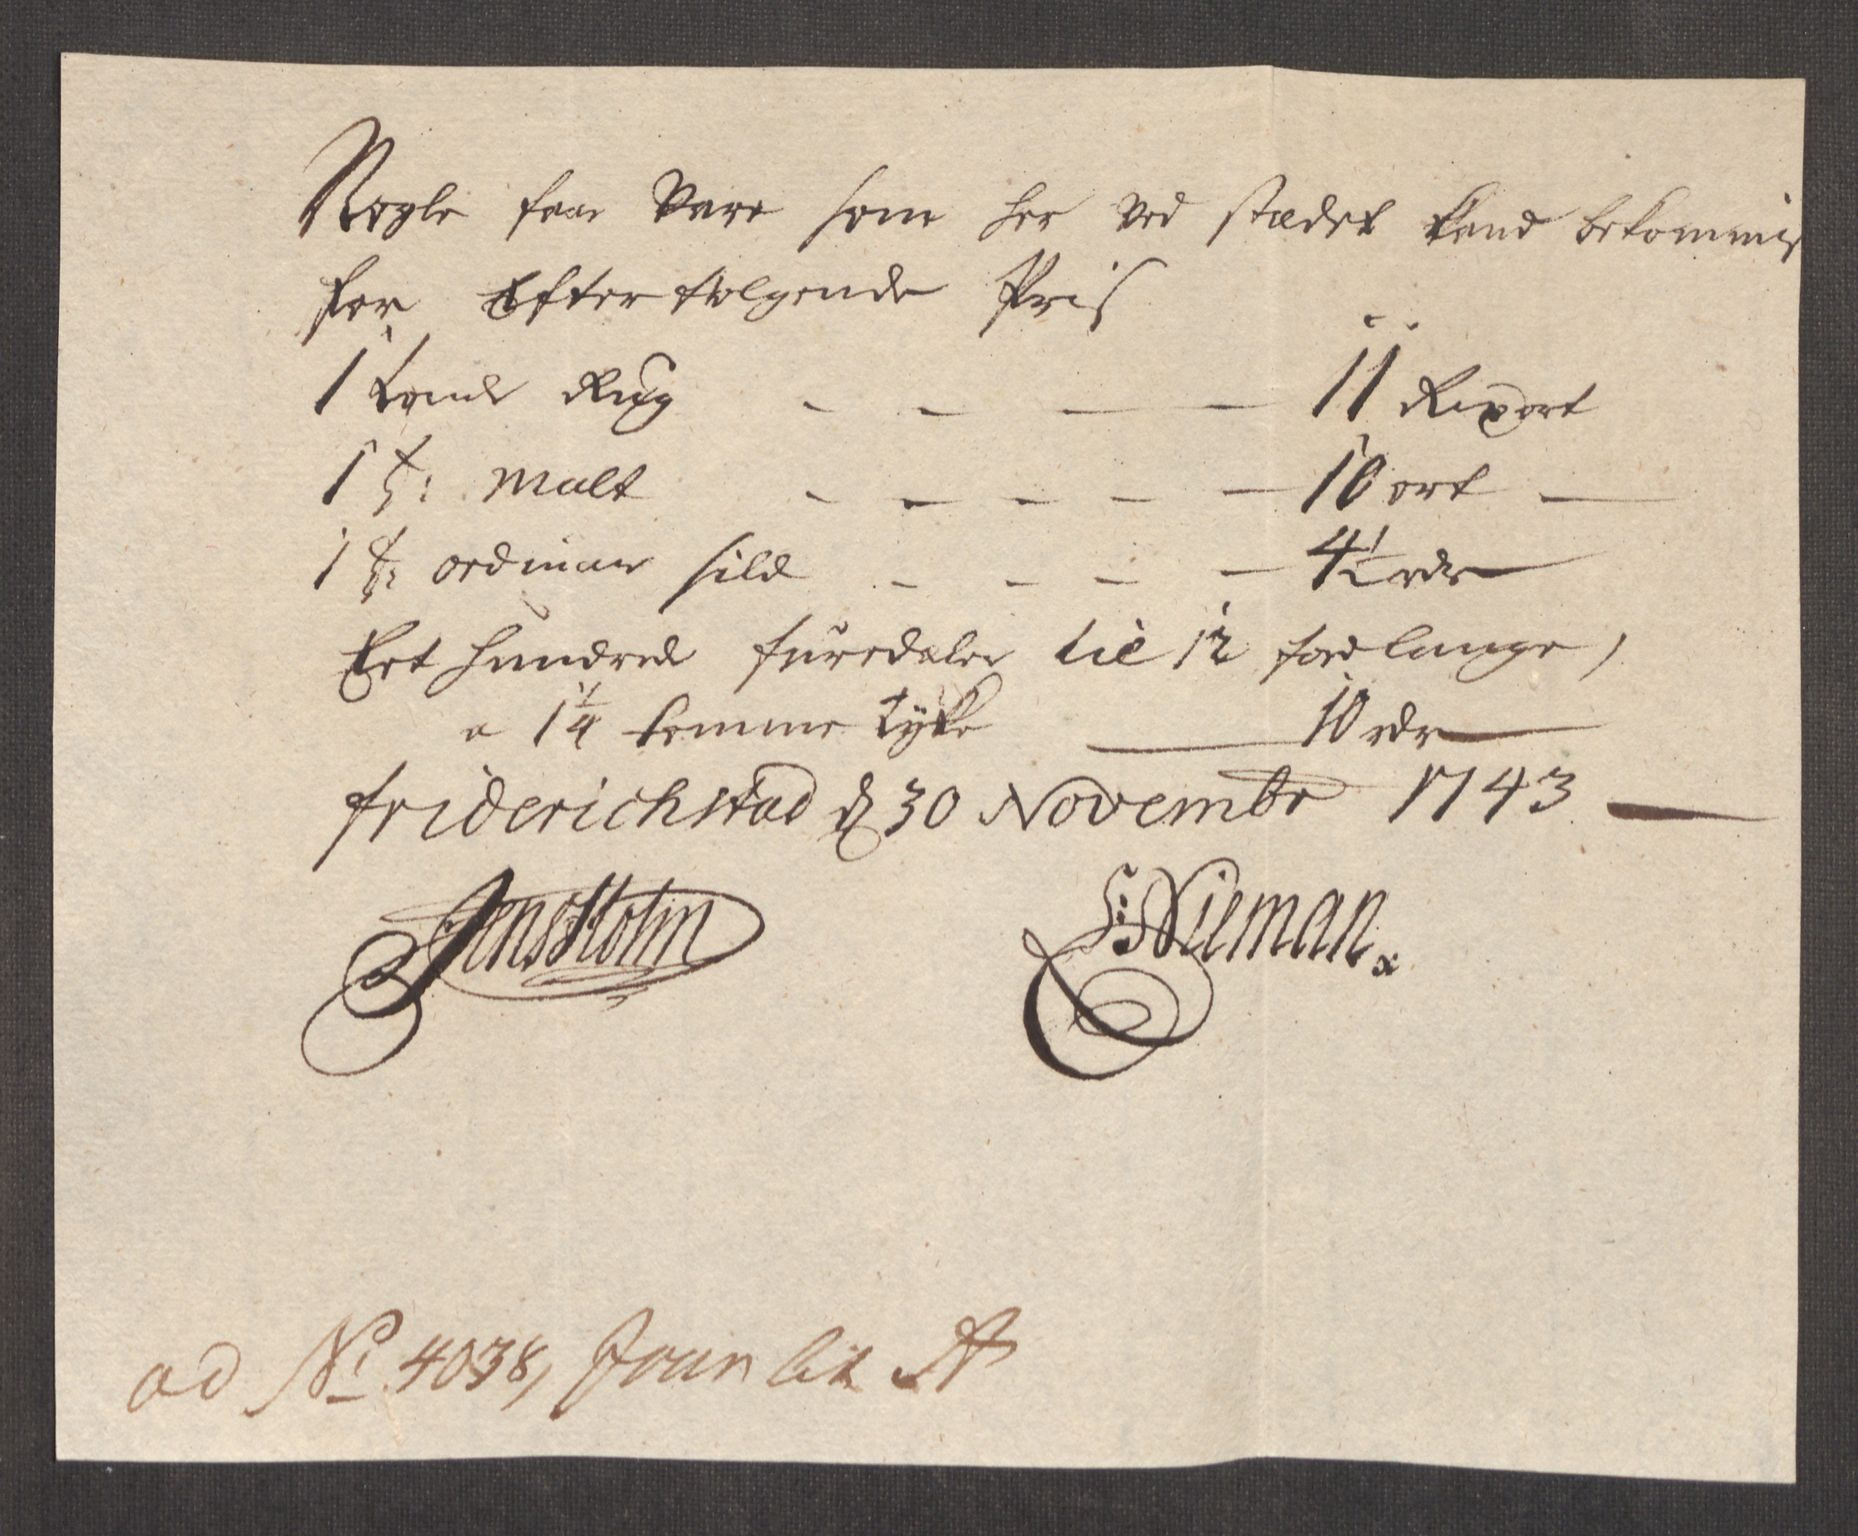 Nogle faae Vare som her ved stædet kand bekommis
for Efterfølgende Pris
1 tønde Rug - - - - 11 Rixort
1 t: Malt - - - - - 10 ort -
1 t: ordinair sild - - - - 4½ rdr
Eet hundrede furredeler til 12 fod lange,
a 1¼ tomme tyke - 10 rdr
friderichstad d 30 Novembr 1743 -
Jens Holm
S: Nieman
ad No 4038, Jour lit A